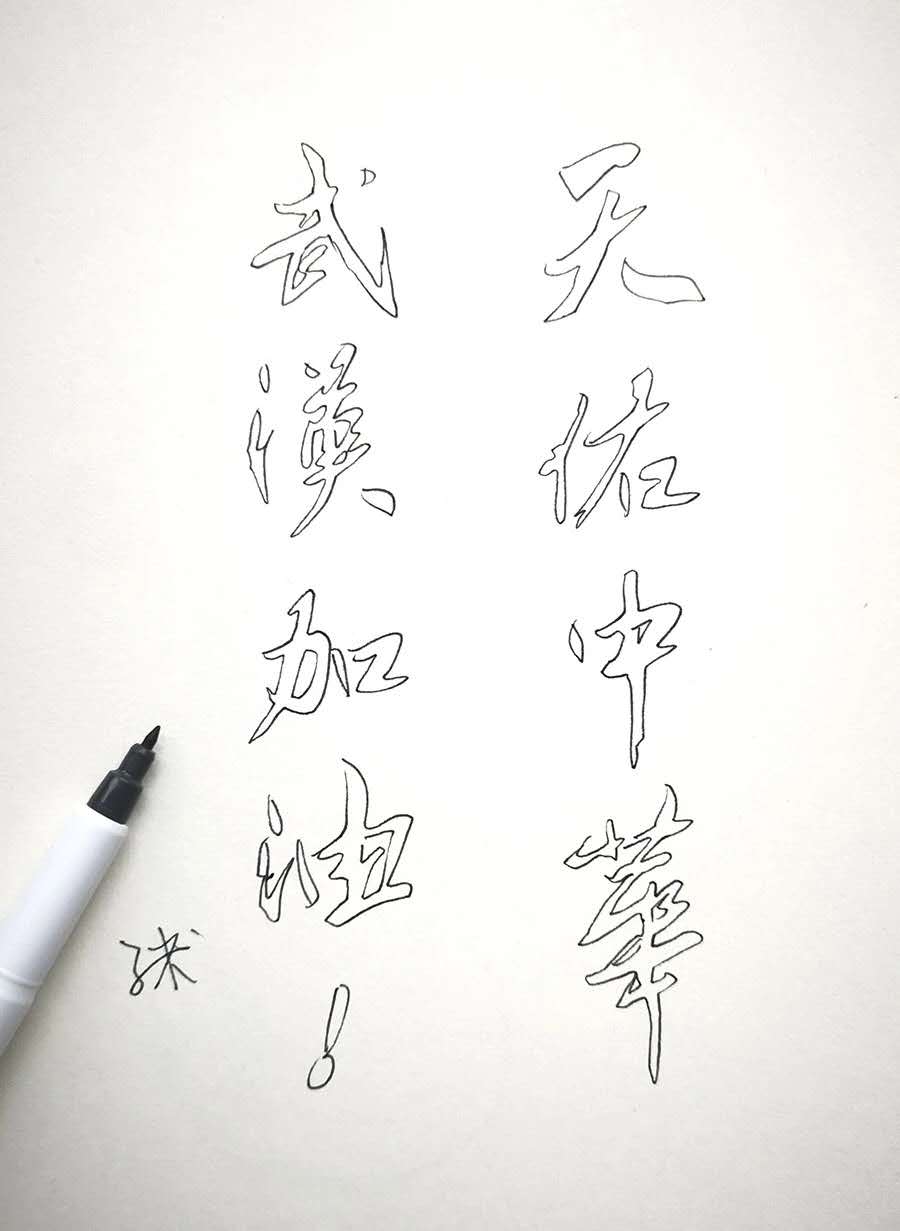 天佑中華
武漢加油!